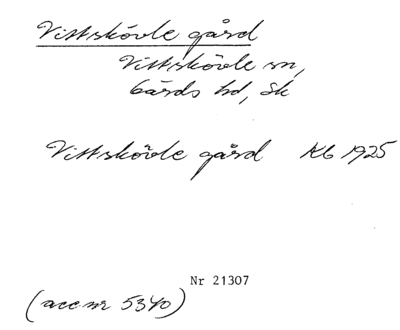 Vittskövle gård
Vittskövle sn,
Gärds hd, Sk
Vittskövle gård KG 1925
Nr 21307
(acc nr 5340)